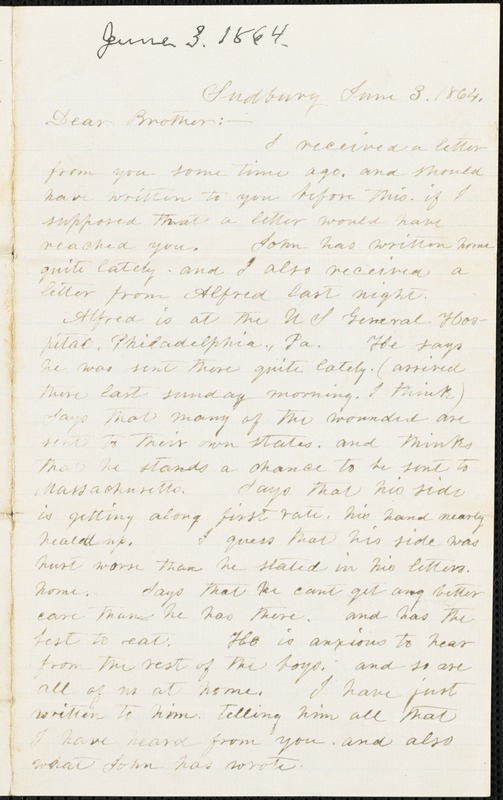 June 3. 1864.
Sudbury June 3. 1864.
Dear Brother:—
I received a letter
from you some time ago. and should
have written to you before this. if I
supposed that a letter would have
reached you. John has written home
quite lately. and I also received a
letter from Alfred last night.
Alfred is at the U S General Hos-
pital, Philadelphia, Pa. He says
he was sent there quite lately. (arrived
there last sunday morning. I think)
Says that many of the wounded are
sent to their own states. and thinks
that he stands a chance to be sent to
Massachusetts. Says that his side
is getting along first rate. his hand nearly
healed up. I guess that his side was
hurt worse than he stated in his letters.
home. Says that he cant get any better
care than he has there. and has the
best to eat. He is anxious to hear
from the rest of the boys. and so are
all of us at home. I have just
written to him. telling him all that
I have heard from you. and also
what John has wrote.